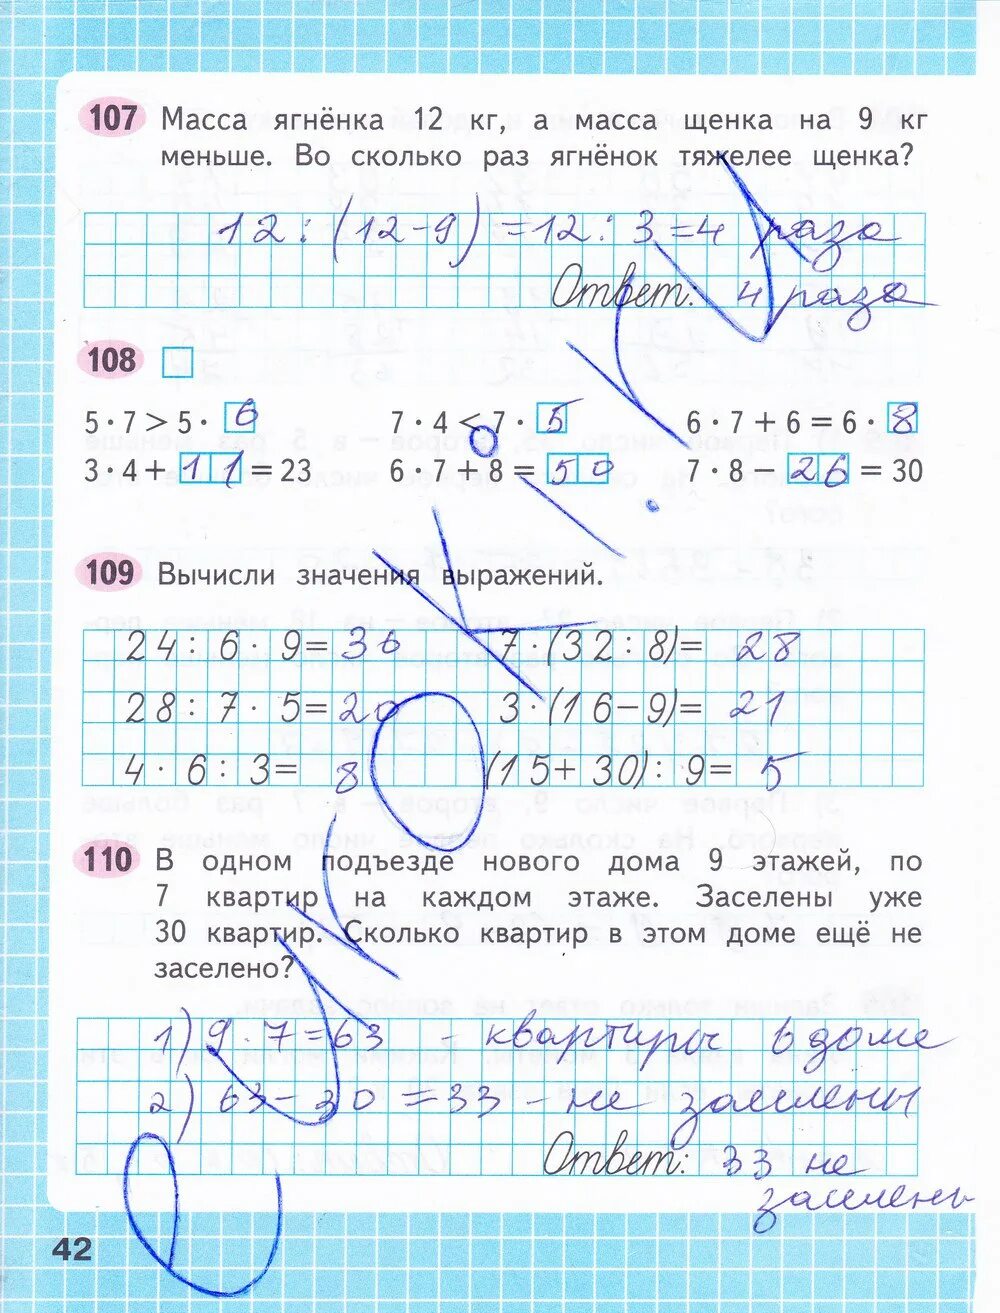 107 Масса ягнёнка 12 кг, а масса щенка на 9 кг
меньше. Во сколько раз ягнёнок тяжелее щенка?
12 : (12-9) = 12 : 3 = 4 раза
Ответ: 4 раза
108
5 · 7 > 5 · 6 7 · 4 < 7 · 5 6 · 7 + 6 = 6 · 8
3 · 4 + 11 = 23 6 · 7 + 8 = 50 7 · 8 − 26 = 30
109 Вычисли значения выражений.
24 : 6 · 9 = 36 7 · (32 : 8) = 28
28 : 7 · 5 = 20 3 · (16 − 9) = 21
4 · 6 : 3 = 8 (15 + 30) : 9 = 5
110 В одном подъезде нового дома 9 этажей, по
7 квартир на каждом этаже. Заселены уже
30 квартир. Сколько квартир в этом доме ещё не
заселено?
1) 9 · 7 = 63 - квартиры в доме
2) 63 - 30 = 33 - не заселены
Ответ: 33 не
заселены
42